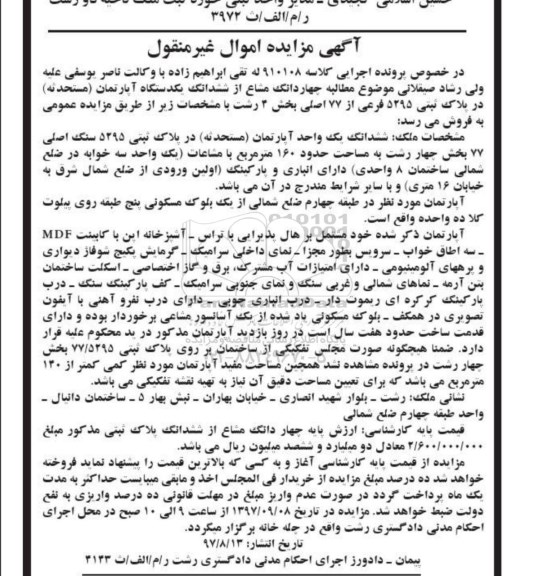 حسین اسلامی کجیدی ـ مدیر واحد ثبتی حوزه ثبت ملک ناحیه دو رشت
ر/م/الف/ث ۳۹۷۲
آگهی مزایده اموال غیرمنقول
در خصوص پرونده اجرایی کلاسه ۹۱۰۱۰۸ له تقی ابراهیم زاده با وکالت ناصر یوسفی علیه
ولی رشاد صیقلانی موضوع مطالبه چهاردانگ مشاع از ششدانگ یکدستگاه آپارتمان (مستحدثه)
در پلاک ثبتی ۵۲۹۵ فرعی از ۷۷ اصلی بخش ۴ رشت با مشخصات زیر از طریق مزایده عمومی
به فروش می رسد:
مشخصات ملک: ششدانگ یک واحد آپارتمان (مستحدثه) در پلاک ثبتی ۵۲۹۵ سنگ اصلی
۷۷ بخش چهار رشت به مساحت حدود ۱۶۰ مترمربع با مشاعات (یک واحد سه خوابه در ضلع
شمالی ساختمان ۸ واحدی) دارای انباری و پارکینگ (اولین ورودی از ضلع شمال شرق به
خیابان ۱۶ متری) و با سایر شرایط مندرج در آن می باشد.
آپارتمان مورد نظر در طبقه چهارم ضلع شمالی از یک بلوک مسکونی پنج طبقه روی پیلوت
کلا ده واحده واقع است.
آپارتمان ذکر شده خود مشتمل بر هال پذیرایی با تراس ـ آشپزخانه اپن با کابینت MDF
ـ سه اطاق خواب ـ سرویس بطور مجزا ـ نمای داخلی سرامیک ـ گرمایش پکیج شوفاژ دیواری
و پرههای آلومینیومی ـ دارای امتیازات آب مشترک، برق و گاز اختصاصی ـ اسکلت ساختمان
بتن آرمه ـ نماهای شمالی و غربی سنگ و نمای جنوبی سرامیک ـ کف پارکینگ سنگ ـ درب
پارکینگ کرکره ای ریموت دار ـ درب انباری چوبی ـ دارای درب نفرو آهنی با آیفون
تصویری در همکف ـ بلوک مسکونی یاد شده از یک آسانسور مشاعی برخوردار بوده و دارای
قدمت ساخت حدود هفت سال است در روز بازدید آپارتمان مذکور در ید محکوم علیه قرار
دارد. ضمنا هیچگونه صورت مجلس تفکیکی از ساختمان بر روی پلاک ثبتی ۷۷/۵۲۹۵ بخش
چهار رشت در پرونده مشاهده نشد همچنین مساحت مفید آپارتمان مورد نظر کمی کمتر از ۱۴۰
مترمربع می باشد که برای تعیین مساحت دقیق آن نیاز به تهیه نقشه تفکیکی می باشد.
نشانی ملک: رشت ـ بلوار شهید انصاری ـ خیابان بهاران ـ نبش بهار ۵ ـ ساختمان دانیال ـ
واحد طبقه چهارم ضلع شمالی
قیمت پایه کارشناسی: ارزش پایه چهار دانگ مشاع از ششدانگ پلاک ثبتی مذکور مبلغ
۲/۶۰۰/۰۰۰/۰۰۰ معادل دو میلیارد و ششصد میلیون ریال می باشد.
مزایده از قیمت پایه کارشناسی آغاز و به کسی که بالاترین قیمت را پیشنهاد نماید فروخته
خواهد شد ده درصد مبلغ مزایده از خریدار فی المجلس اخذ و مابقی میبایست حداکثر به مدت
یک ماه پرداخت گردد در صورت عدم واریز مبلغ در مهلت قانونی ده درصد واریزی به نفع
دولت ضبط خواهد شد. مزایده در تاریخ ۱۳۹۷/۰۹/۰۸ از ساعت ۹ الی ۱۰ صبح در محل اجرای
احکام مدنی دادگستری رشت واقع در چله خانه برگزار میگردد.
تاریخ انتشار: ۹۷/۸/۱۳
پیمان ـ دادورز اجرای احکام مدنی دادگستری رشت ر/م/الف/ث ۴۱۴۳